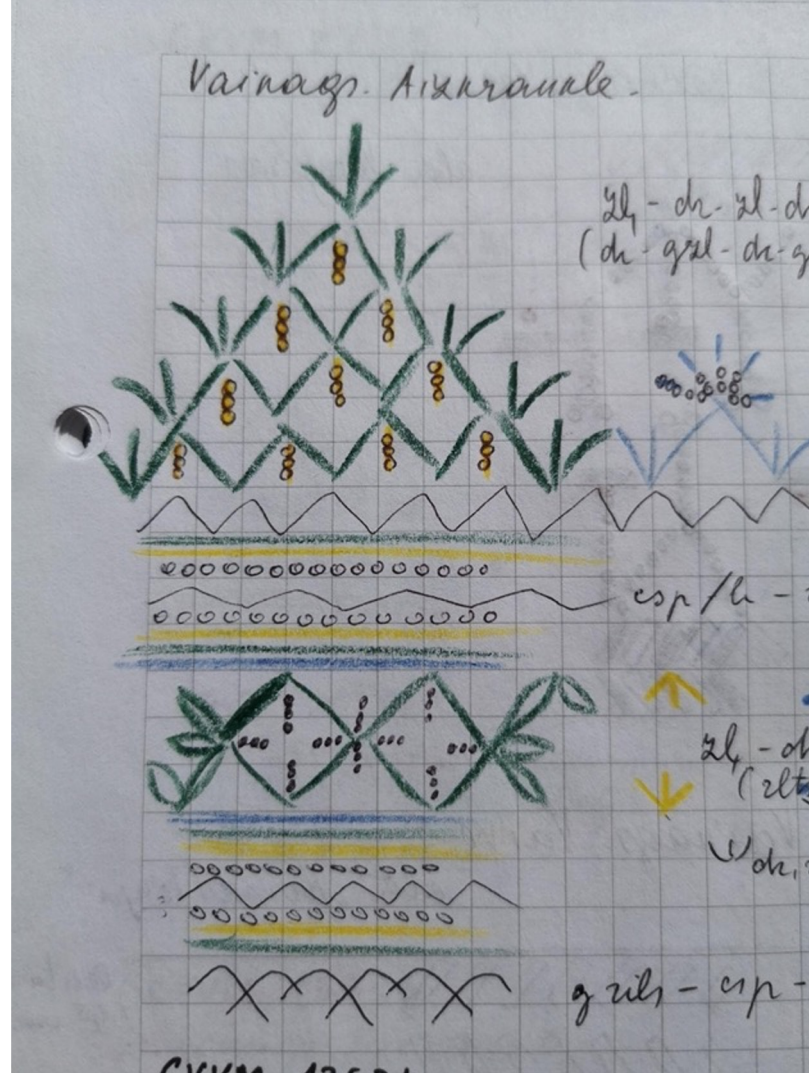 Vainags. Aizkraukle.
zl, - dk - zl - d
(dk - gzl - dk - g
csp/k -
zl, - d
(zlt
dk,
gzils - csp -
CVVM